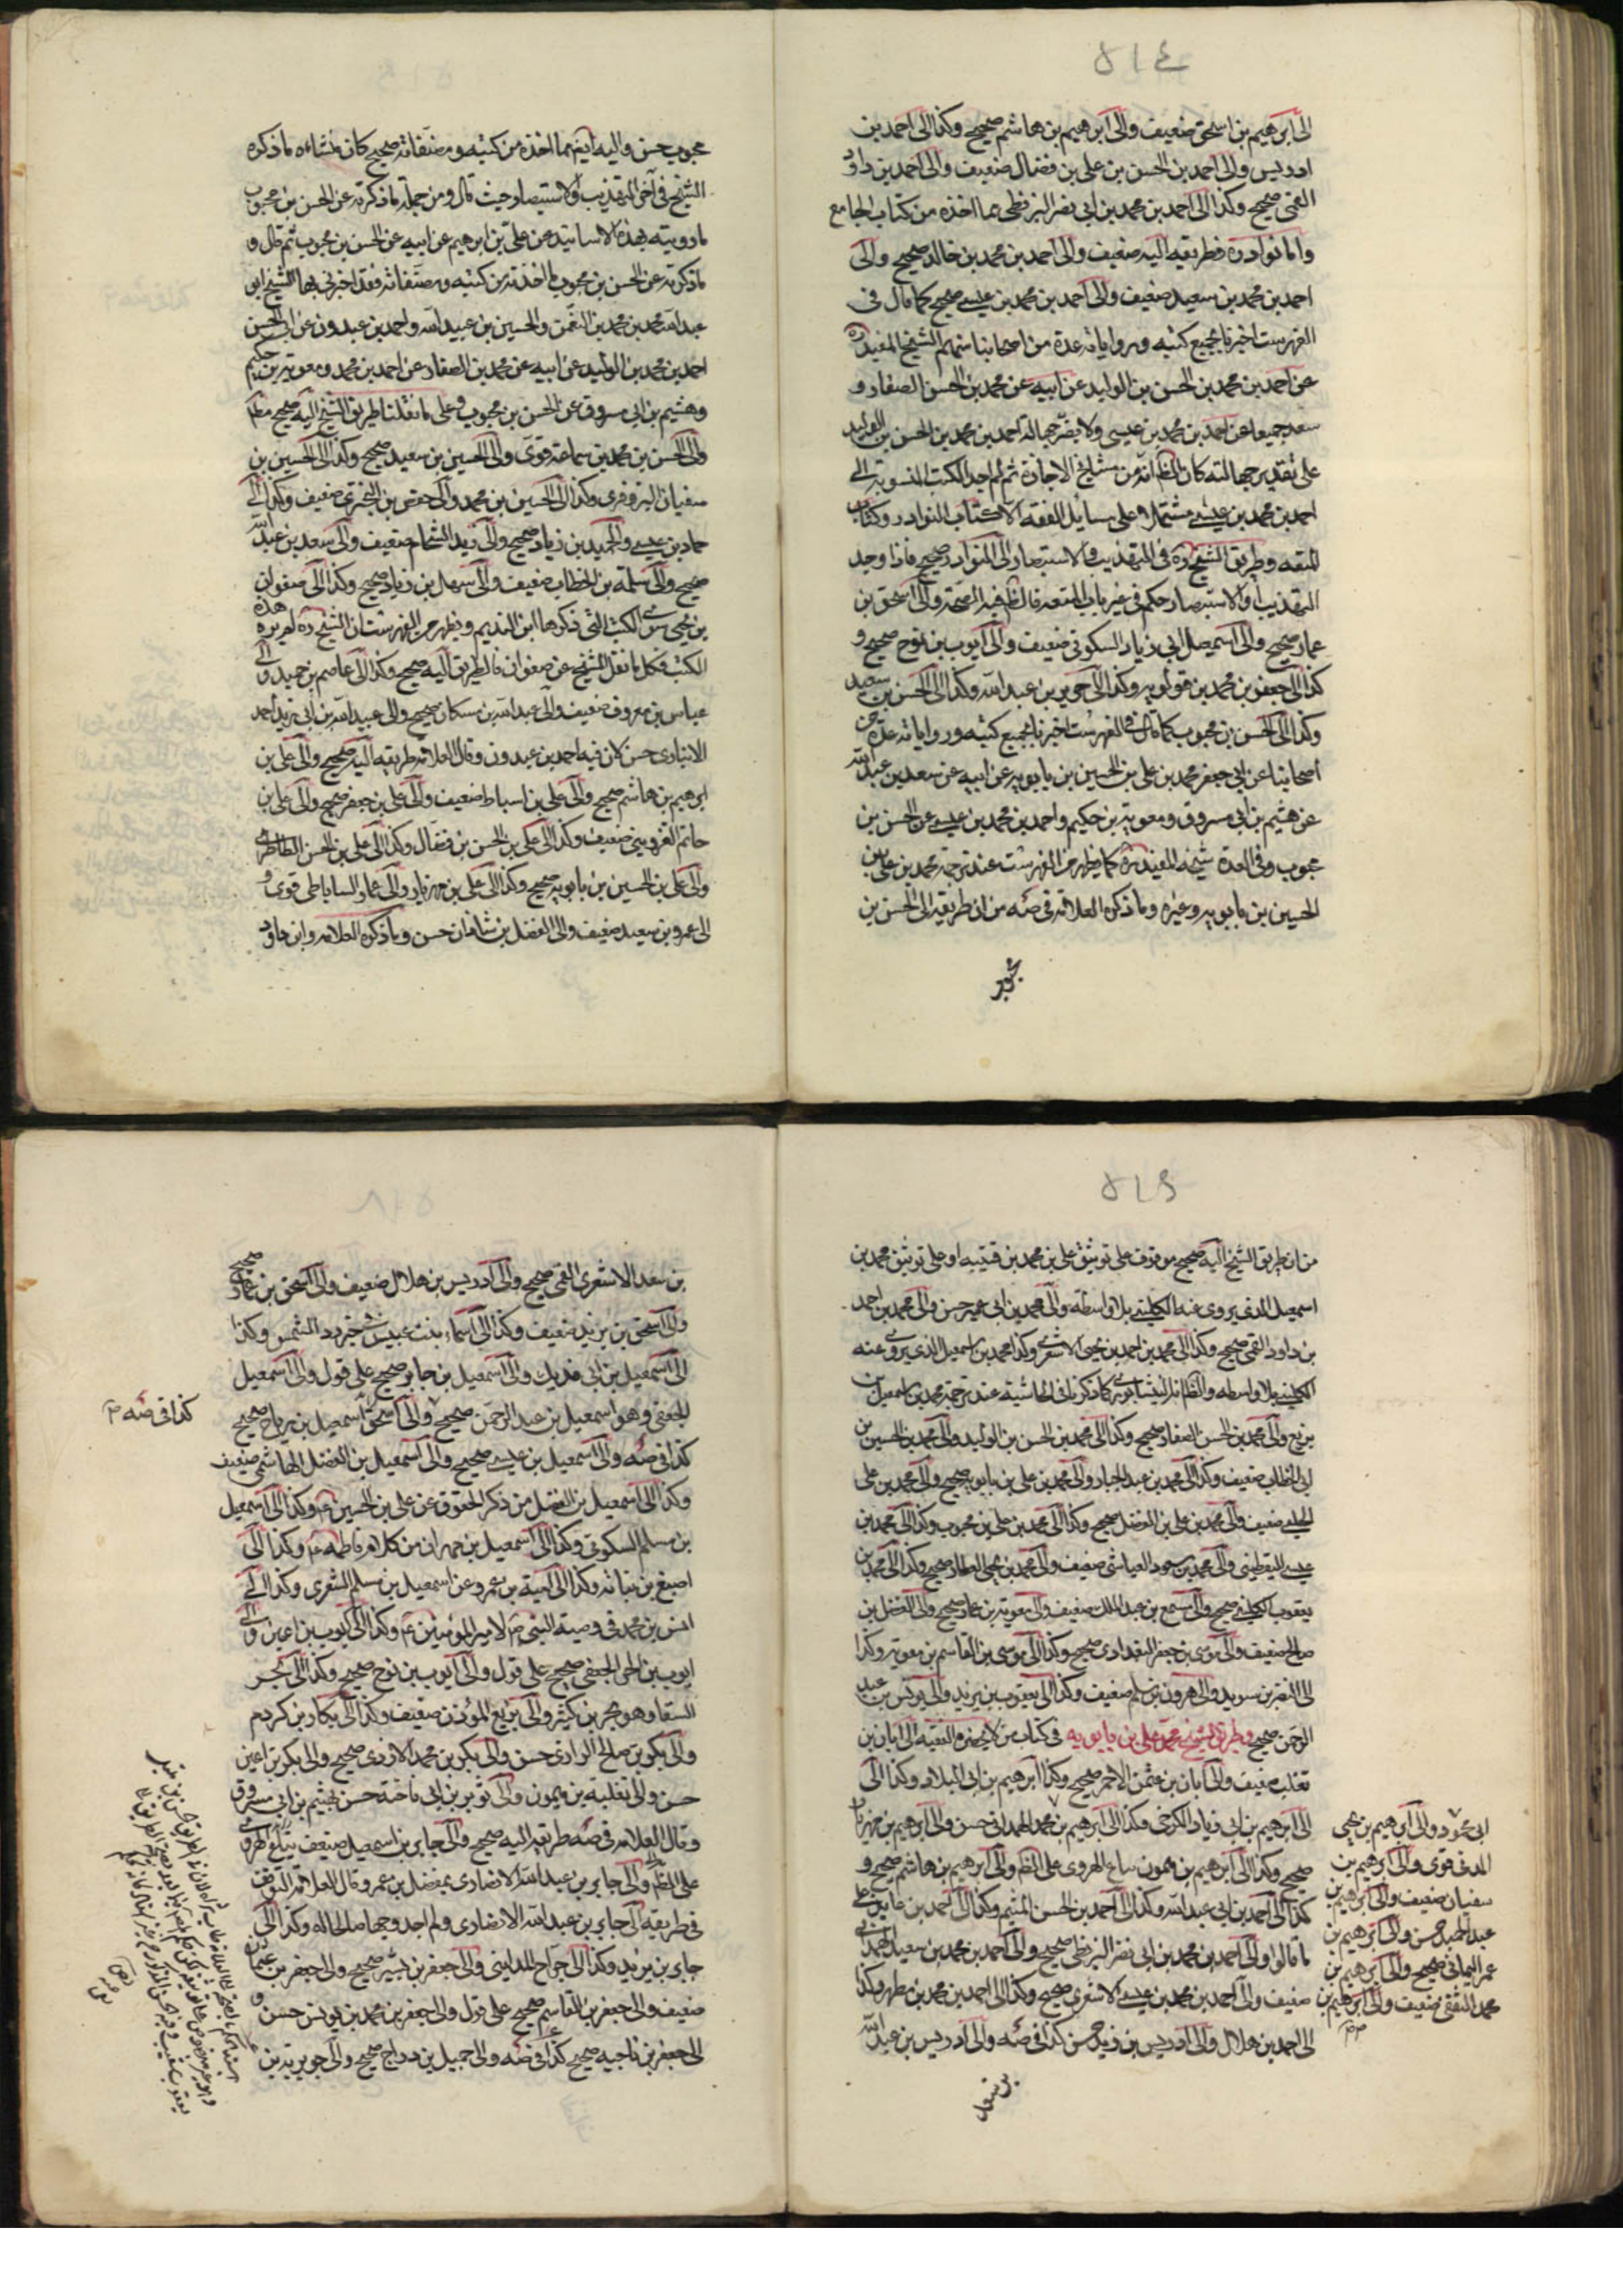 ٥١٤
الى ابرهيم بن اسحق ضعيف والى ابرهيم بن هاشم صحيح وكذا الى احمد بن
ادريس والى احمد بن الحسن بن على بن فضال ضعيف والى احمد بن داود
القمى صحيح وكذا الى احمد بن محمد بن ابى نصر البزنطى مما اخذه من كتاب الجامع
واما نوادره فطريقه اليه ضعيف والى احمد بن محمد بن خالد صحيح والى
احمد بن محمد بن سعيد ضعيف والى احمد بن محمد بن عيسى صحيح كما قال فى
الفهرست اخبرنا بجميع كتبه ورواياته عدة من اصحابنا منهم الشيخ المفيد ره
عن احمد بن محمد بن الحسن بن الوليد عن ابيه عن محمد بن الحسن الصفار و
سعد جميعا عن احمد بن محمد بن عيسى ولا يضر جهالة احمد بن محمد بن الحسن بن الوليد
على تقدير جهالته كان الظ انه من مشايخ الاجازة ثم لم اجد الكتب المنسوبة الى
احمد بن محمد بن عيسى مشتملا على مسائل الفقه الا كتاب النوادر وكتاب
المتعه وطريق الشيخ ره فى التهذيب والاستبصار الى النوادر صحيح فاذا وجد
التهذيب او الاستبصار حكم فى غير باب المتعه فالظ فيه الصحة والى اسحق بن
عمار صحيح والى اسمعيل ابى زياد السكونى ضعيف والى ايوب بن نوح صحيح و
كذا الى جعفر بن محمد بن قولويه وكذا الى حريز بن عبد الله وكذا الى الحسن بن سعيد
وكذا الى الحسن بن محبوب كما قال فى الفهرست اخبرنا بجميع كتبه ورواياته عدة من
اصحابنا عن ابى جعفر محمد بن على بن الحسين بن بابويه عن ابيه عن سعد بن عبد الله
عن هثيم بن ابى مسروق ومعوية بن حكيم واحمد بن محمد بن عيسى عن الحسن بن
محبوب وفى العدة شيخه المفيد ره كما يظهر من الفهرست عند ترجمة محمد بن على بن
الحسين بن بابويه وغيره وما ذكره العلامة فى صه من ان طريقه الى الحسن بن
محبوب
محبوب حسن واليه ايضا مما اخذه من كتبه ومصنفاته صحيح كان منشاءه ما ذكره
الشيخ فى آخر التهذيب والاستبصار حيث قال ومن جملة ما ذكرته عن الحسن بن محبوب
ما رويته بهذه الاسانيد عن على بن ابرهيم عن ابيه عن الحسن بن محبوب ثم قال و
ما ذكرته عن الحسن بن محبوب ما اخذته من كتبه ومصنفاته فقد اخبرنى بها الشيخ ابو
عبد الله محمد بن محمد بن النعمن والحسين بن عبيد الله واحمد بن عبدون عن ابى الحسن
احمد بن محمد بن الوليد عن ابيه عن محمد بن الصفار عن احمد بن محمد ومعوية بن حكيم
وهثيم بن ابى مسروق عن الحسن بن محبوب وعلى ما نقلنا طريق الشيخ اليه صحيح مطلقا
والى الحسن بن محمد بن سماعة قوى والى الحسين بن سعيد صحيح وكذا الى الحسين بن
سفيان البزوفرى وكذا الى الحسين بن محمد والى حفص بن البخترى ضعيف وكذا الى
حماد بن عيسى والى حميد بن زياد صحيح والى زيد الشحام ضعيف والى سعد بن عبد الله
صحيح والى سلمة بن الخطاب ضعيف والى سهل بن زياد صحيح وكذا الى صفوان
بن يحيى سوى الكتب التى ذكرها ابن النديم ويظهر من الفهرست ان الشيخ ره لم يره هذه
الكتب فكل ما نقل الشيخ عن صفوان فالطريق اليه صحيح وكذا الى عاصم بن حميد والى
عباس بن معروف ضعيف والى عبد الله بن مسكان صحيح والى عبيد الله بن ابى زيد احمد
الانبارى حسن كان فيه احمد بن عبدون وقال العلامة طريقه اليه صحيح والى على بن
ابرهيم بن هاشم صحيح والى على بن اسباط ضعيف والى على بن جعفر صحيح والى على بن
حاتم القزوينى ضعيف وكذا الى على بن الحسن بن فضال وكذا الى على بن الحسن الطاطرى
والى على بن الحسين بن بابويه صحيح وكذا الى على بن مهزيار والى عمار الساباطى قوى و
الى عمرو بن سعيد ضعيف والى الفضل بن شاذان حسن وما ذكره العلامه وابن داود
٥١٦
من ان طريق الشيخ اليه صحيح موقوف على توثيق على بن محمد بن قتيبه او على توثيق محمد بن
اسمعيل الذى يروى عنه الكلينى بلا واسطه والى محمد بن ابى عمير حسن والى محمد بن احمد
بن داود القمى صحيح وكذا الى محمد بن احمد بن يحيى الاشعرى وكذا محمد بن اسمعيل الذى يروى عنه
الكلينى بلا واسطه والظ انه النيشابورى كما ذكرنا فى الحاشية عند ترجمة محمد بن اسمعيل بن
بزيع والى محمد بن الحسن الصفار صحيح وكذا الى محمد بن الحسن بن الوليد والى محمد بن الحسين بن
ابى الخطاب ضعيف وكذا الى محمد بن عبد الجبار والى محمد بن على بن بابويه صحيح والى محمد بن على
الحلبى ضعيف والى محمد بن على بن الفضل صحيح وكذا الى محمد بن على بن محبوب وكذا الى محمد بن
عيسى اليقطينى والى محمد بن مسعود العياشى ضعيف والى محمد بن يحيى العطار صحيح وكذا الى محمد بن
يعقوب الكلينى صحيح والى مسمع بن عبد الملك ضعيف والى معوية بن عمار صحيح والى الفضل بن
صالح ضعيف والى موسى بن جعفر البغدادى صحيح وكذا الى موسى بن القاسم بن معوية وكذا
الى النضر بن سويد والى هرون بن مسلم ضعيف وكذا الى يعقوب بن يزيد والى يونس بن عبد
الرحمن صحيح وطريق الشيخ محمد بن على بن بابويه فى كتاب من لا يحضره الفقيه الى ابان بن
تغلب ضعيف والى ابان بن عثمن الاحمر صحيح وكذا ابرهيم بن ابى البلاد وكذا الى
الى ابرهيم بن ابى زياد الكرخى وكذا الى ابرهيم بن محمد الهمدانى حسن والى ابرهيم بن مهزيار
صحيح وكذا الى ابرهيم بن هرون صاع الهروى على الظ والى ابرهيم بن هاشم صحيح و
كذا الى احمد بن ابى عبد الله وكذا الى احمد بن الحسن الميثمى وكذا الى احمد بن عايذ على
ما قالوا والى احمد بن محمد بن ابى نصر البزنطى صحيح والى احمد بن محمد بن سعيد الهمدانى
ضعيف والى احمد بن محمد بن عيسى الاشعرى صحيح وكذا الى احمد بن محمد بن مطهر وكذا
الى احمد بن هلال والى ادريس بن زيد حسن كذا فى صه والى ادريس بن عبد الله
بن سعد
ابى محمود والى ابرهيم بن يحيى
المدنى قوى والى ابرهيم بن
سفيان ضعيف والى ابرهيم بن
عبد الحميد حسن والى ابرهيم بن
عمر اليمانى صحيح والى ابرهيم بن
محمد الثقفى ضعيف والى ابرهيم بن
بن سعد الاشعرى القمى صحيح والى ادريس بن هلال ضعيف والى اسحق بن عمار صحيح
والى اسحق بن يزيد ضعيف وكذا الى اسماء بنت عميس خبر رد الشمس وكذا
الى اسمعيل بن ابى فديك والى اسمعيل بن جابر صحيح على قول والى اسمعيل
الجعفى وهو اسمعيل بن عبد الرحمن صحيح والى اسمعيل بن رباح صحيح
كذا فى صه والى اسمعيل بن عيسى صحيح والى اسمعيل بن الفضل الهاشمى ضعيف
وكذا الى اسمعيل بن الفضل من ذكر الحقوق عن على بن الحسين ع وكذا الى اسمعيل
بن مسلم السكونى وكذا الى اسمعيل بن مهران من كلام فاطمه ع وكذا الى
اصبغ بن نباته وكذا الى امية بن عمرو عن اسمعيل بن مسلم الشعرى وكذا الى
انس بن محمد فى وصية النبى ص لامير المؤمنين ع وكذا الى ايوب بن اعين والى
ايوب بن الحر الجعفى صحيح على قول والى ايوب بن نوح صحيح وكذا الى بحر
السقا وهو بحر بن كثير والى بزيع المؤذن ضعيف وكذا الى بكار بن كردم
والى بكر بن صالح الرازى حسن والى بكر بن محمد الازدى صحيح والى بكير بن اعين
حسن والى ثعلبة بن ميمون والى ثوير بن ابى فاخته حسن بهثيم بن ابى مسروق
وقال العلامه فى صه طريقه اليه صحيح والى جابر بن اسمعيل ضعيف
على الظ والى جابر بن عبد الله الانصارى بمفضل بن عمر وقال العلامة التوقف
فى طريقه الى جابر بن عبد الله الانصارى ولم اجد وجها صالحا له وكذا الى
جابر بن يزيد وكذا الى جراح المداينى والى جعفر بن بشير صحيح والى جعفر بن عثمان
ضعيف والى جعفر بن القاسم صحيح على قول والى جعفر بن محمد بن يونس حسن و
الى جعفر بن ناجيه صحيح كذا فى صه والى جميل بن دراج صحيح والى جويرية بن
كذا فى صه م